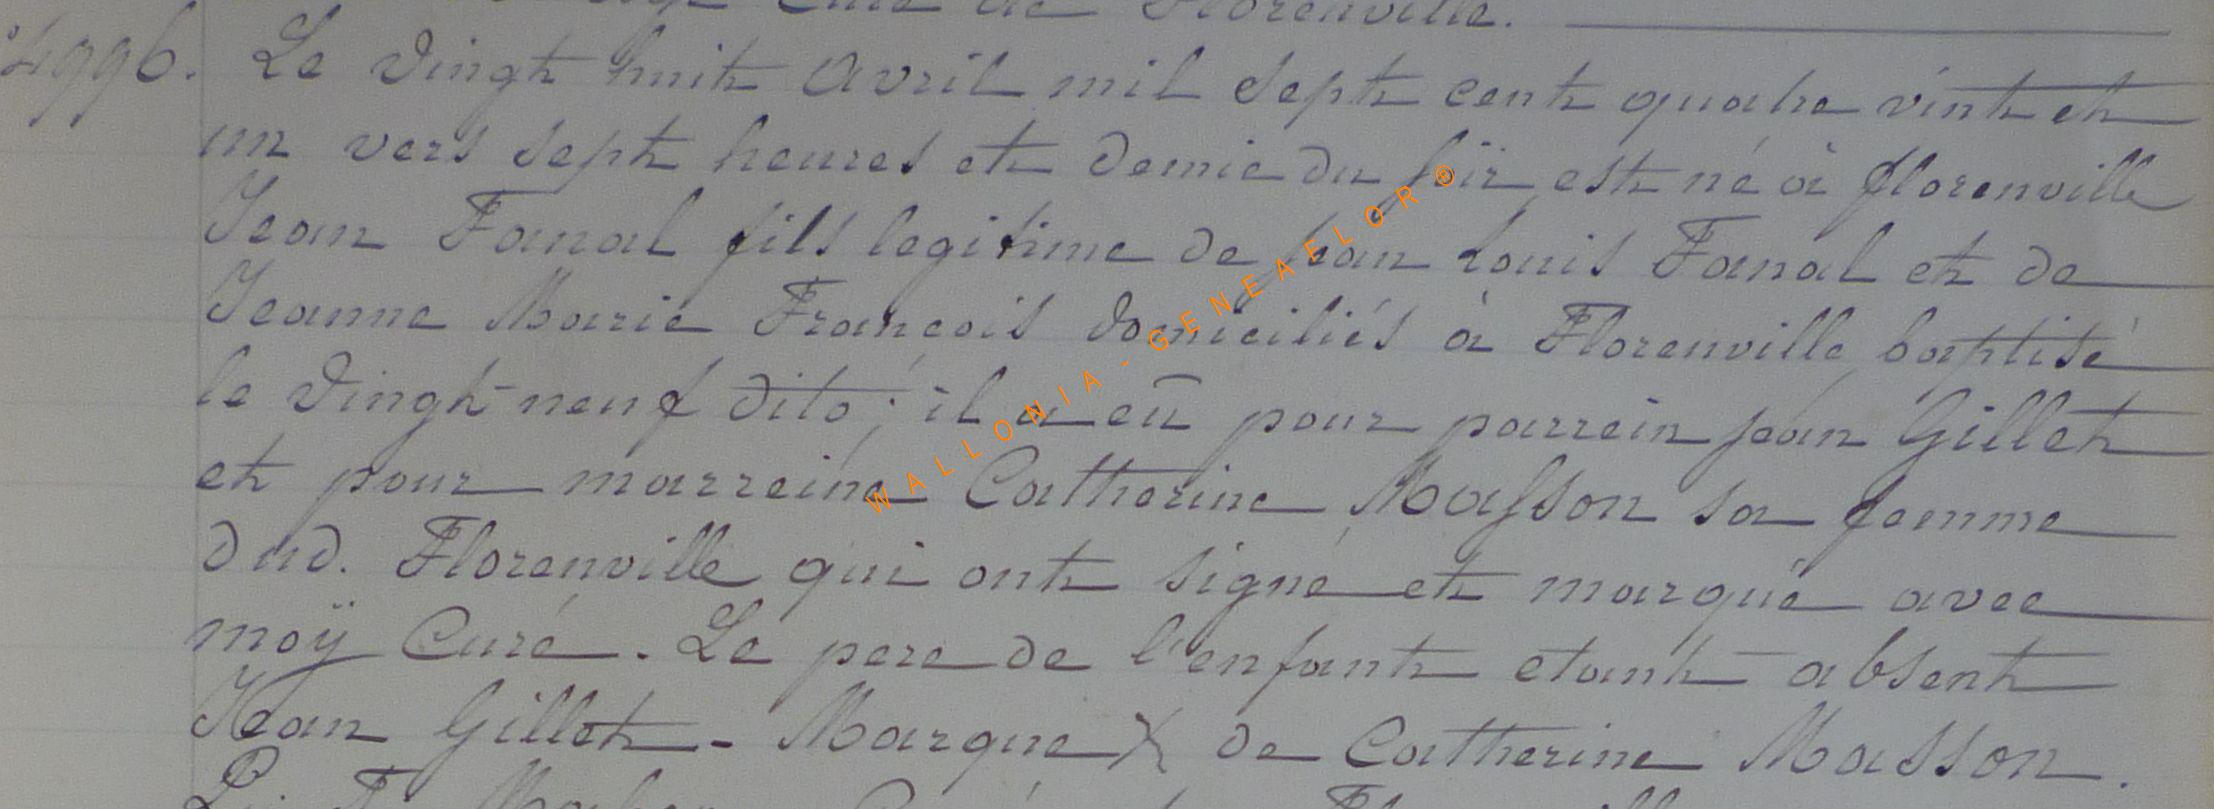 Curé de Florenville.
4996. Le vingt huit Avril mil sept cent quatre vint et
un vers sept heures et demie du soir est né à florenville
Jean Fanal fils legitime de jean Louis Fanal et de
Jeanne Marie François domiciliés à Florenville baptisé
le vingt-neuf dito; il a eu pour parrein jean Gillet
et pour marreine Catherine Masson sa femme
dud. Florenville qui ont signé et marqué avec
moÿ Curé. Le pere de l'enfant etant absent
Jean Gillet - Marque X de Catherine Masson.
WALLONIA-GENEAFLOR®